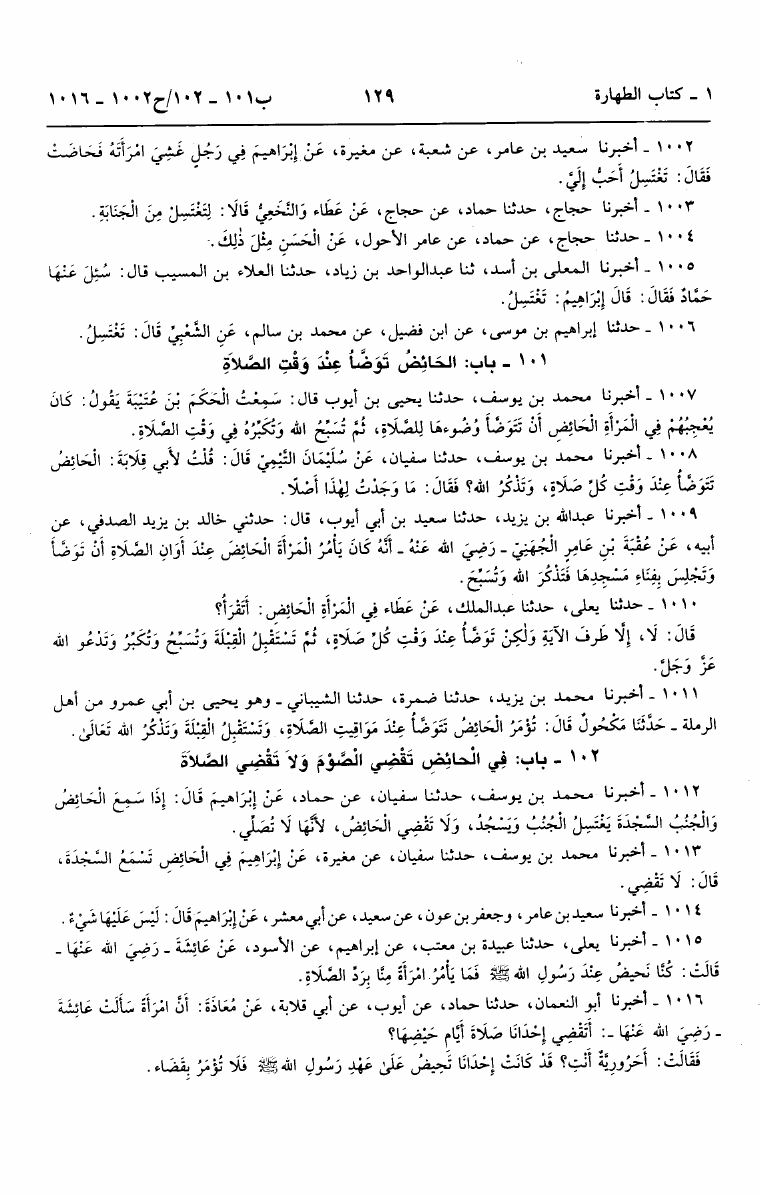 ١ ـ كتاب الطهارة ١٢٩ ب١٠١ ـ ١٠٢/ح١٠٠٢ ـ ١٠١٦
١٠٠٢ ـ أخبرنا سعيد بن عامر، عن شعبة، عن مغيرة، عَنْ إِبْرَاهِيمَ فِي رَجُلٍ غَشِيَ امْرَأَتَهُ فَحَاضَتْ
فَقَالَ: تَغْتَسِلُ أَحَبُّ إِلَيَّ.
١٠٠٣ ـ أخبرنا حجاج، حدثنا حماد، عن حجاج، عَنْ عَطَاء وَالنَّخَعِيِّ قَالَا: لِتَغْتَسِلْ مِنَ الْجَنَابَةِ.
١٠٠٤ ـ حدثنا حجاج، عن حماد، عن عامر الأحول، عَنْ الْحَسَنِ مِثْلَ ذٰلِكَ.
١٠٠٥ ـ أخبرنا المعلى بن أسد، ثنا عبدالواحد بن زياد، حدثنا العلاء بن المسيب قال: سُئِلَ عَنْهَا
حَمَّادٌ فَقَالَ: قَالَ إِبْرَاهِيمُ: تَغْتَسِلُ.
١٠٠٦ ـ حدثنا إبراهيم بن موسى، عن ابن فضيل، عن محمد بن سالم، عَنِ الشَّعْبِيِّ قَالَ: تَغْتَسِلُ.
١٠١ ـ باب: الحَائِضُ تَوَضَّأُ عِنْدَ وَقْتِ الصَّلاَةِ
١٠٠٧ ـ أخبرنا محمد بن يوسف، حدثنا يحيى بن أيوب قال: سَمِعْتُ الْحَكَمَ بْنَ عُتَيْبَةَ يَقُولُ: كَانَ
يُعْجِبُهُمْ فِي الْمَرْأَةِ الْحَائِضِ أَنْ تَتَوَضَّأَ وُضُوءهَا لِلصَّلَاةِ، ثُمَّ تُسَبِّحُ الله وَتُكَبِّرُهُ فِي وَقْتِ الصَّلَاةِ.
١٠٠٨ ـ أخبرنا محمد بن يوسف، حدثنا سفيان، عَنْ سُلَيْمَانَ التَّيْمِيِّ قَالَ: قُلْتُ لأَبِي قِلَابَةَ: الْحَائِضُ
تَتَوَضَّأُ عِنْدَ وَقْتِ كُلِّ صَلَاةٍ، وَتَذْكُرُ الله؟ فَقَالَ: مَا وَجَدْتُ لِهٰذَا أَصْلًا.
١٠٠٩ ـ أخبرنا عبدالله بن يزيد، حدثنا سعيد بن أبي أيوب، قال: حدثني خالد بن يزيد الصدفي، عن
أبيه، عَنْ عُقْبَةَ بْنِ عَامِرٍ الْجُهَنِيِّ ـ رَضِيَ الله عَنْهُ ـ أَنَّهُ كَانَ يَأْمُرُ الْمَرْأَةَ الْحَائِضَ عِنْدَ أَوَانِ الصَّلَاةِ أَنْ تَوَضَّأَ
وَتَجْلِسَ بِفِنَاءِ مَسْجِدِهَا فَتَذْكُرَ الله وَتُسَبِّحَ.
١٠١٠ ـ حدثنا يعلى، حدثنا عبدالملك، عَنْ عَطَاء فِي الْمَرْأَةِ الْحَائِضِ: أَتَقْرَأُ؟
قَالَ: لَا، إِلَّا طَرَفَ الآيَةِ وَلٰكِنْ تَوَضَّأُ عِنْدَ وَقْتِ كُلِّ صَلَاةٍ، ثُمَّ تَسْتَقْبِلُ الْقِبْلَةَ وَتُسَبِّحُ وَتُكَبِّرُ وَتَدْعُو الله
عَزَّ وَجَلَّ.
١٠١١ ـ أخبرنا محمد بن يزيد، حدثنا ضمرة، حدثنا الشيباني ـ وهو يحيى بن أبي عمرو من أهل
الرملة ـ حَدَّثَنَا مَكْحُولٌ قَالَ: تُؤْمَرُ الْحَائِضُ تَتَوَضَّأُ عِنْدَ مَوَاقِيتِ الصَّلَاةِ، وَتَسْتَقْبِلُ الْقِبْلَةَ وَتَذْكُرُ الله تَعَالَىٰ.
١٠٢ ـ باب: فِي الْحائِضِ تَقْضِي الصَّوْمَ وَلاَ تَقْضِي الصَّلاَةَ
١٠١٢ ـ أخبرنا محمد بن يوسف، حدثنا سفيان، عن حماد، عَنْ إِبْرَاهِيمَ قَالَ: إِذَا سَمِعَ الْحَائِضُ
وَالْجُنُبُ السَّجْدَةَ يَغْتَسِلُ الْجُنُبُ وَيَسْجُدُ، وَلَا تَقْضِي الْحَائِضُ، لأَنَّهَا لَا تُصَلِّي.
١٠١٣ ـ أخبرنا محمد بن يوسف، حدثنا سفيان، عن مغيرة، عَنْ إِبْرَاهِيمَ فِي الْحَائِضِ تَسْمَعُ السَّجْدَةَ،
قَالَ: لَا تَقْضِي.
١٠١٤ ـ أخبرنا سعيد بن عامر، وجعفر بن عون، عن سعيد، عن أبي معشر، عَنْ إِبْرَاهِيمَ قَالَ: لَيْسَ عَلَيْهَا شَيْءٌ.
١٠١٥ ـ أخبرنا يعلى، حدثنا عبيدة بن معتب، عن إبراهيم، عن الأسود، عَنْ عَائِشَةَ ـ رَضِيَ الله عَنْهَا ـ
قَالَتْ: كُنَّا نَحيضُ عِنْدَ رَسُولِ الله ﷺ فَمَا يَأْمُرُ امْرَأَةً مِنَّا بِرَدِّ الصَّلَاةِ.
١٠١٦ ـ أخبرنا أبو النعمان، حدثنا حماد، عن أيوب، عن أبي قلابة، عَنْ مُعَاذَةَ: أَنَّ امْرَأَةً سَأَلَتْ عَائِشَةَ
ـ رَضِيَ الله عَنْهَا ـ: أَتَقْضِي إِحْدَانَا صَلَاةَ أَيَّامِ حَيْضِهَا؟
فَقَالَتْ: أَحَرُورِيَّةٌ أَنْتِ؟ قَدْ كَانَتْ إِحْدَانَا تَحِيضُ عَلَىٰ عَهْدِ رَسُولِ الله ﷺ فَلَا تُؤْمَرُ بِقَضَاء.